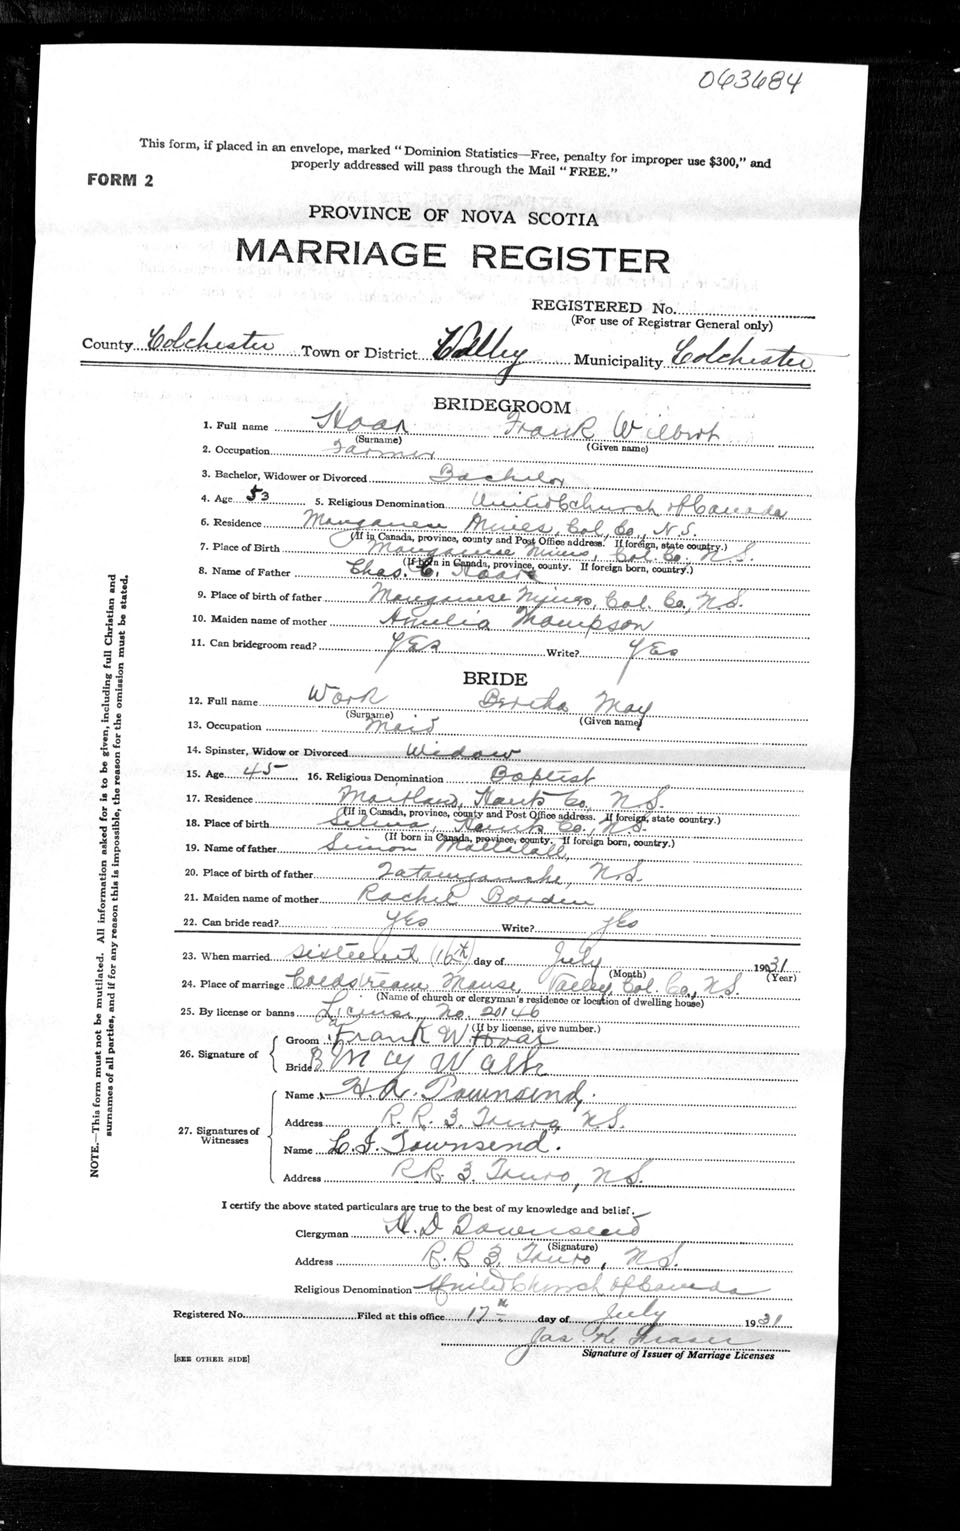 063684
This form, if placed in an envelope, marked "Dominion Statistics—Free, penalty for improper use $300," and
properly addressed will pass through the Mail "FREE."
FORM 2
PROVINCE OF NOVA SCOTIA
MARRIAGE REGISTER
REGISTERED No.
(For use of Registrar General only)
County Colchester Town or District Valley Municipality Colchester
BRIDEGROOM
1. Full name Hoar Frank Wilbert
(Surname) (Given name)
2. Occupation Farmer
3. Bachelor, Widower or Divorced Bachelor
4. Age 53 5. Religious Denomination United Church of Canada
6. Residence Manganese Mines, Col. Co., N.S.
(If in Canada, province, county and Post Office address. If foreign, state country.)
7. Place of Birth Manganese Mines, Col. Co. N.S.
(If born in Canada, province, county. If foreign born, country.)
8. Name of Father Chas. C. Hoar
9. Place of birth of father Manganese Mines, Col. Co., N.S.
10. Maiden name of mother Amelia Thompson
11. Can bridegroom read? Yes Write? Yes
BRIDE
12. Full name Work Bertha May
(Surname) (Given name)
13. Occupation Maid
14. Spinster, Widow or Divorced Widow
15. Age 45 16. Religious Denomination Baptist
17. Residence Maitland, Hants Co., N.S.
(If in Canada, province, county and Post Office address. If foreign, state country.)
18. Place of birth Selma, Hants Co., N.S.
(If born in Canada, province, county. If foreign born, country.)
19. Name of father Simon Mattatall
20. Place of birth of father Tatamagouche, N.S.
21. Maiden name of mother Rachel
22. Can bride read? Yes Write? Yes
23. When married sixteenth (16th) day of July 1931
(Month) (Year)
24. Place of marriage Coldstream Manse, Valley, Col. Co., N.S.
(Name of church or clergyman's residence or location of dwelling house)
25. By license or banns License, No. 20146
(If by license, give number.)
26. Signature of
Groom Frank W Hoar
Bride B
27. Signatures of
Witnesses
Name H. A. Townsend,
Address R. R. 3. Truro, N.S.
Name L. F. Townsend.
Address R.R. 3. Truro, N.S.
I certify the above stated particulars are true to the best of my knowledge and belief.
Clergyman H. D Townsend
(Signature)
Address R. R. 3. Truro, N.S.
Religious Denomination United Church of Canada
Registered No. Filed at this office 17th day of July 1931
Jas. H. Fraser
Signature of Issuer of Marriage Licenses
[SEE OTHER SIDE]
NOTE.—This form must not be mutilated. All information asked for is to be given, including full Christian and
surnames of all parties, and if for any reason this is impossible, the reason for the omission must be stated.